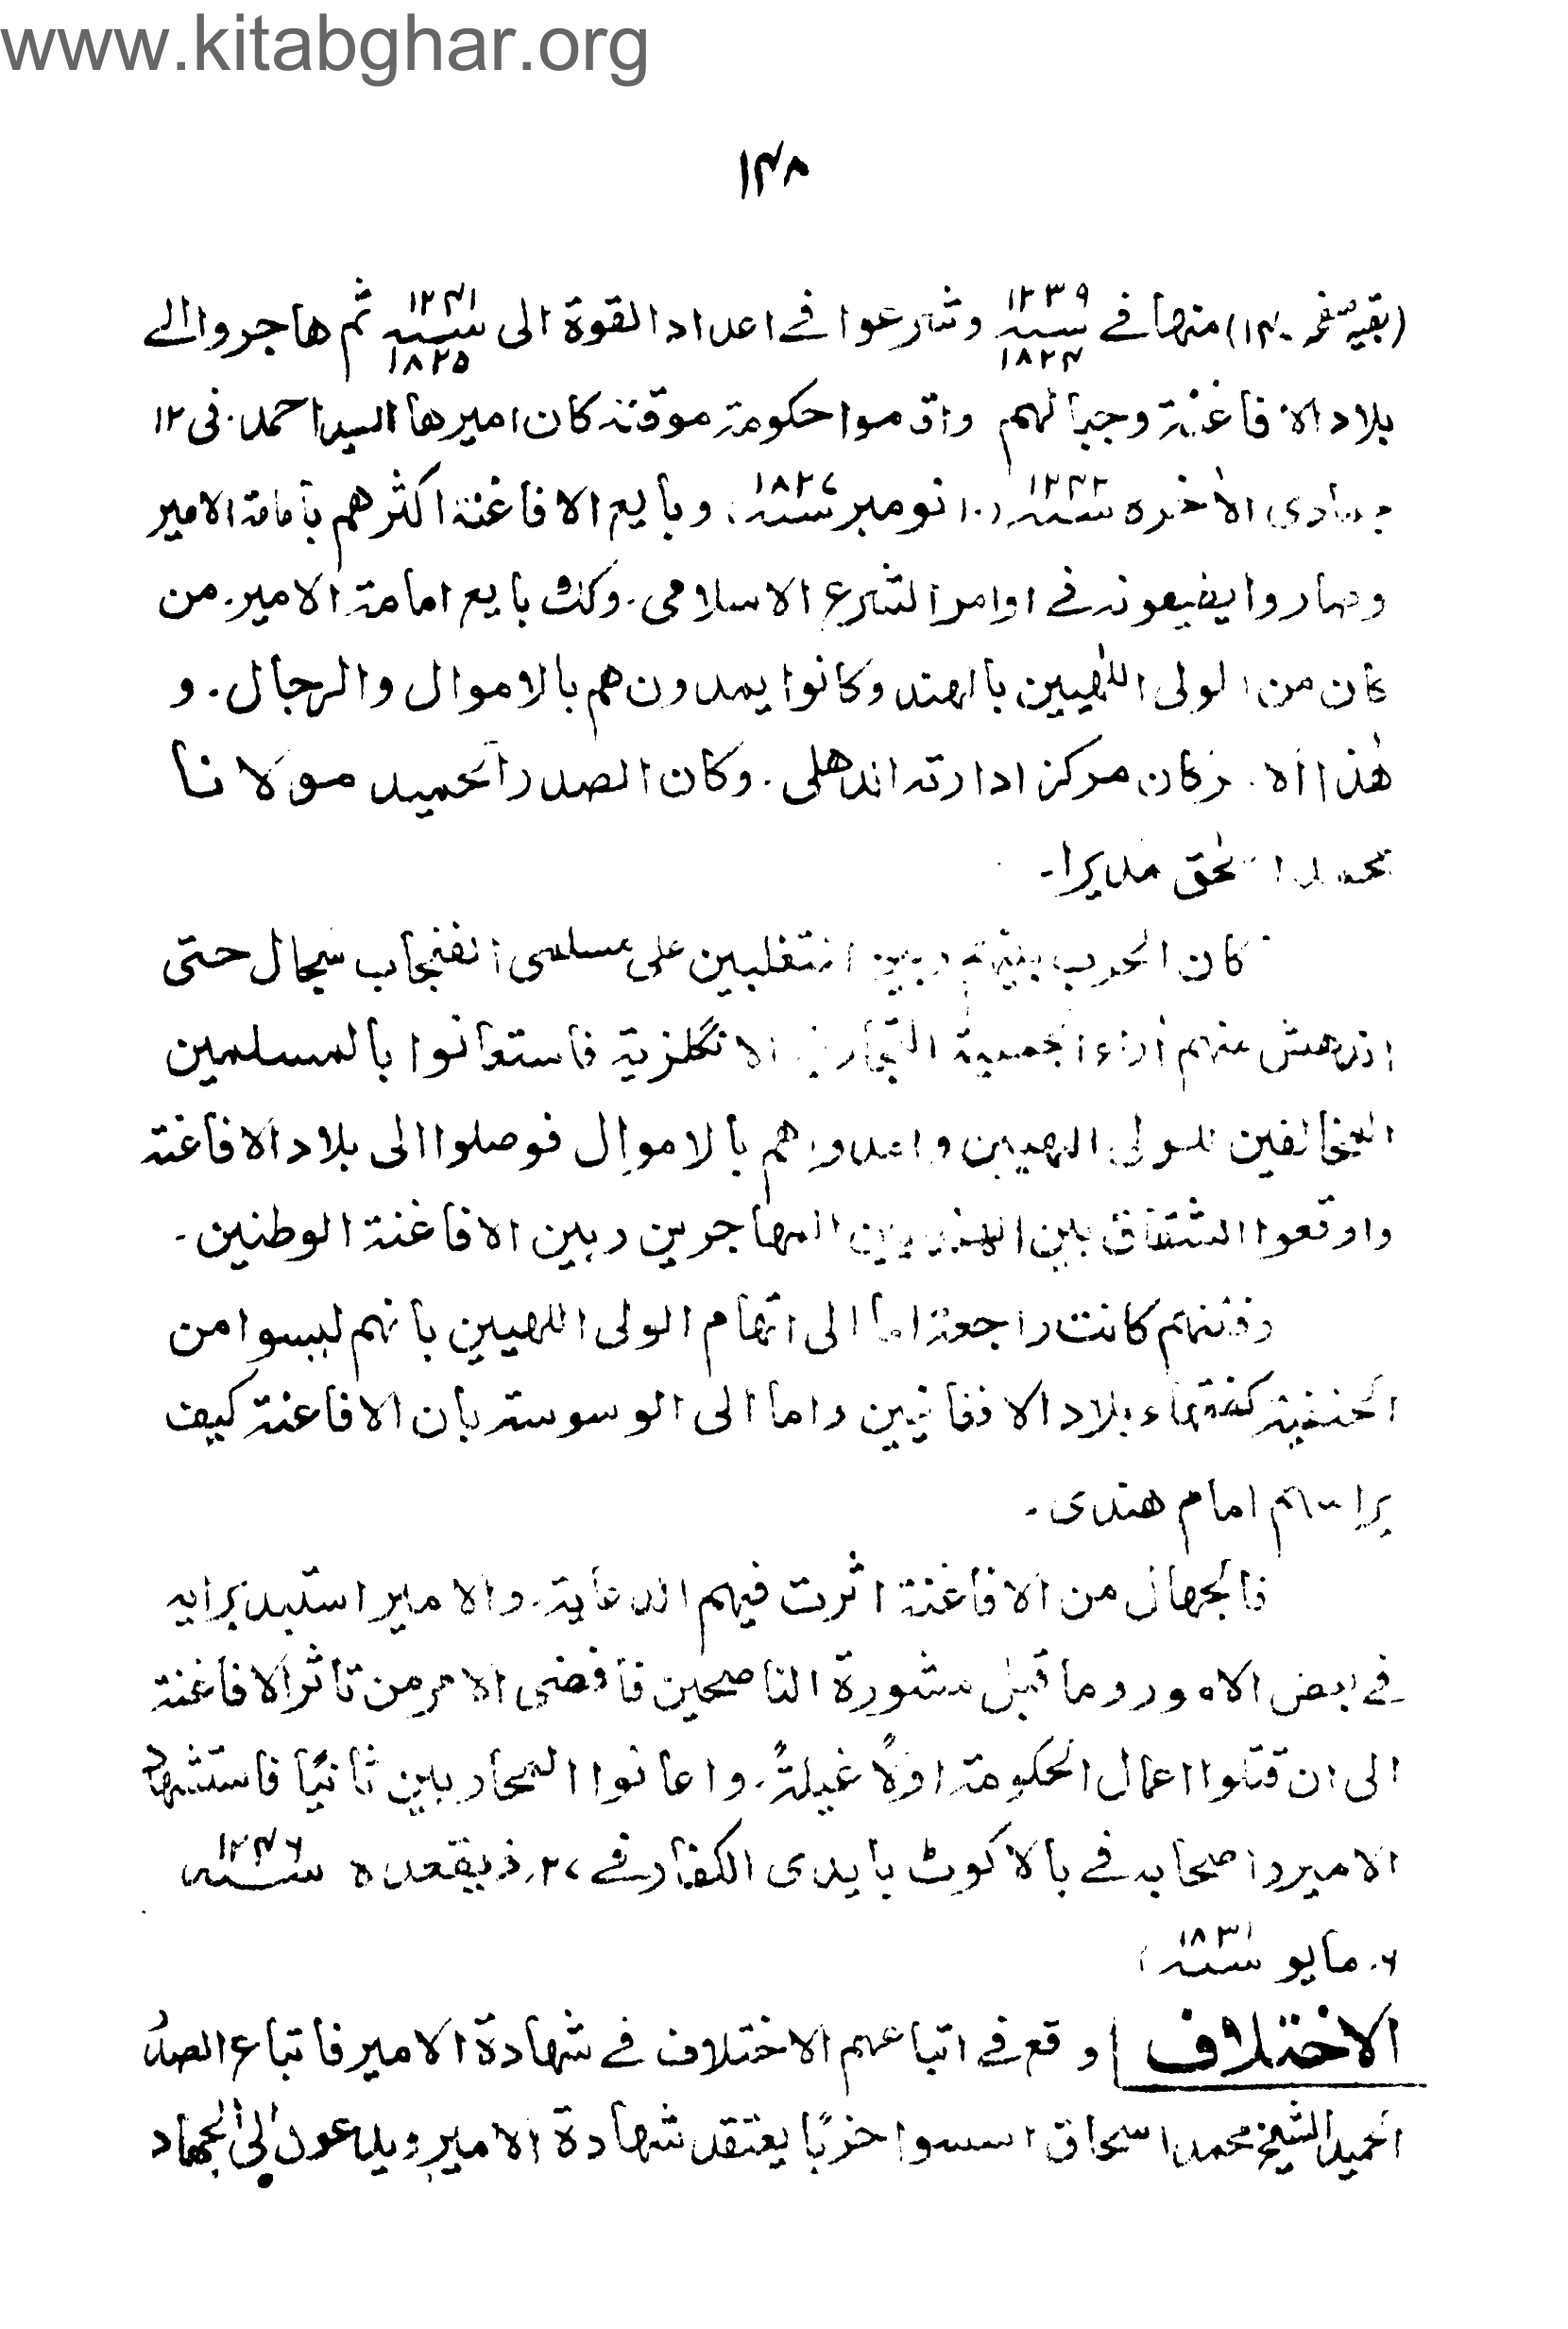 www.kitabghar.org
۱۴۸
(بقیہ صفحہ ۱۴۰) منھا فے سنہ ۱۲۳۹ ۱۸۲۴ وشرعوا فے اعداد القوة الی سنہ ۱۲۴۱ ۱۸۲۵ ثم ھاجروا الے
بلاد الافاغنة وجبالھم واقاموا حکومة موقتة کان امیرھا السید احمد. فی ۱۲
جمادی الاٰخرہ سنہ ۱۲۴۲ (۱۰ نومبر سنہ ۱۸۲۷) وبایع الافاغنة اکثرھم بامامة الامیر
وصاروا یطیعونہ فے اوامر الشرع الاسلامی. وکذٰلک بایع امامة الامیر. من
کان من الولی اللٰھیین بالھند وکانوا یمدونھم بالاموال والرجال. و
ھٰذا کان مرکز ادارتہ الدھلی. وکان الصدر الحمید مولانا
محمد اسحٰق مدیرا.
کان الحرب بینھم وبین المتغلبین علی مسلمی الفنجاب سجال حتی
اندھش منھم امراء الجمعیة التجاریة الانگلزیة فاستعانوا بالمسلمین
المخالفین للولی اللھیین وامدوھم بالاموال فوصلوا الی بلاد الافاغنة
واوقعوا الشقاق بین الھندیین المھاجرین وبین الافاغنة الوطنین.
وفتنتھم کانت راجعة اما الی اتھام الولی اللھیین بانھم لیسوا من
الحنفیة کفقھاء بلاد الافغانیین واما الی الوسوسة بان الافاغنة کیف
یراسھم امام ھندی.
فالجھال من الافاغنة اثرت فیھم الدعایة. والامیر استبد برایہ
فے بعض الامور وما قبل مشورة الناصحین فافضی الامر من تاثر الافاغنة
الی ان قتلوا اعمال الحکومة اولًا غیلةً. واعانوا المحاربین ثانیًا فاستشھد
الامیر واصحابہ فے بالاکوٹ بایدی الکفار فے ۲۷؍ ذیقعدہ سنہ ۱۲۴۶
۶. مایو سنہ ۱۸۳۱
الاختلاف وقع فے اتباعھم الاختلاف فے شھادة الامیر فاتباع الصدر
الحمید الشیخ محمد اسحاق اسسوا حزبًا یعتقد شھادة الامیر ویدعون الی الجھاد